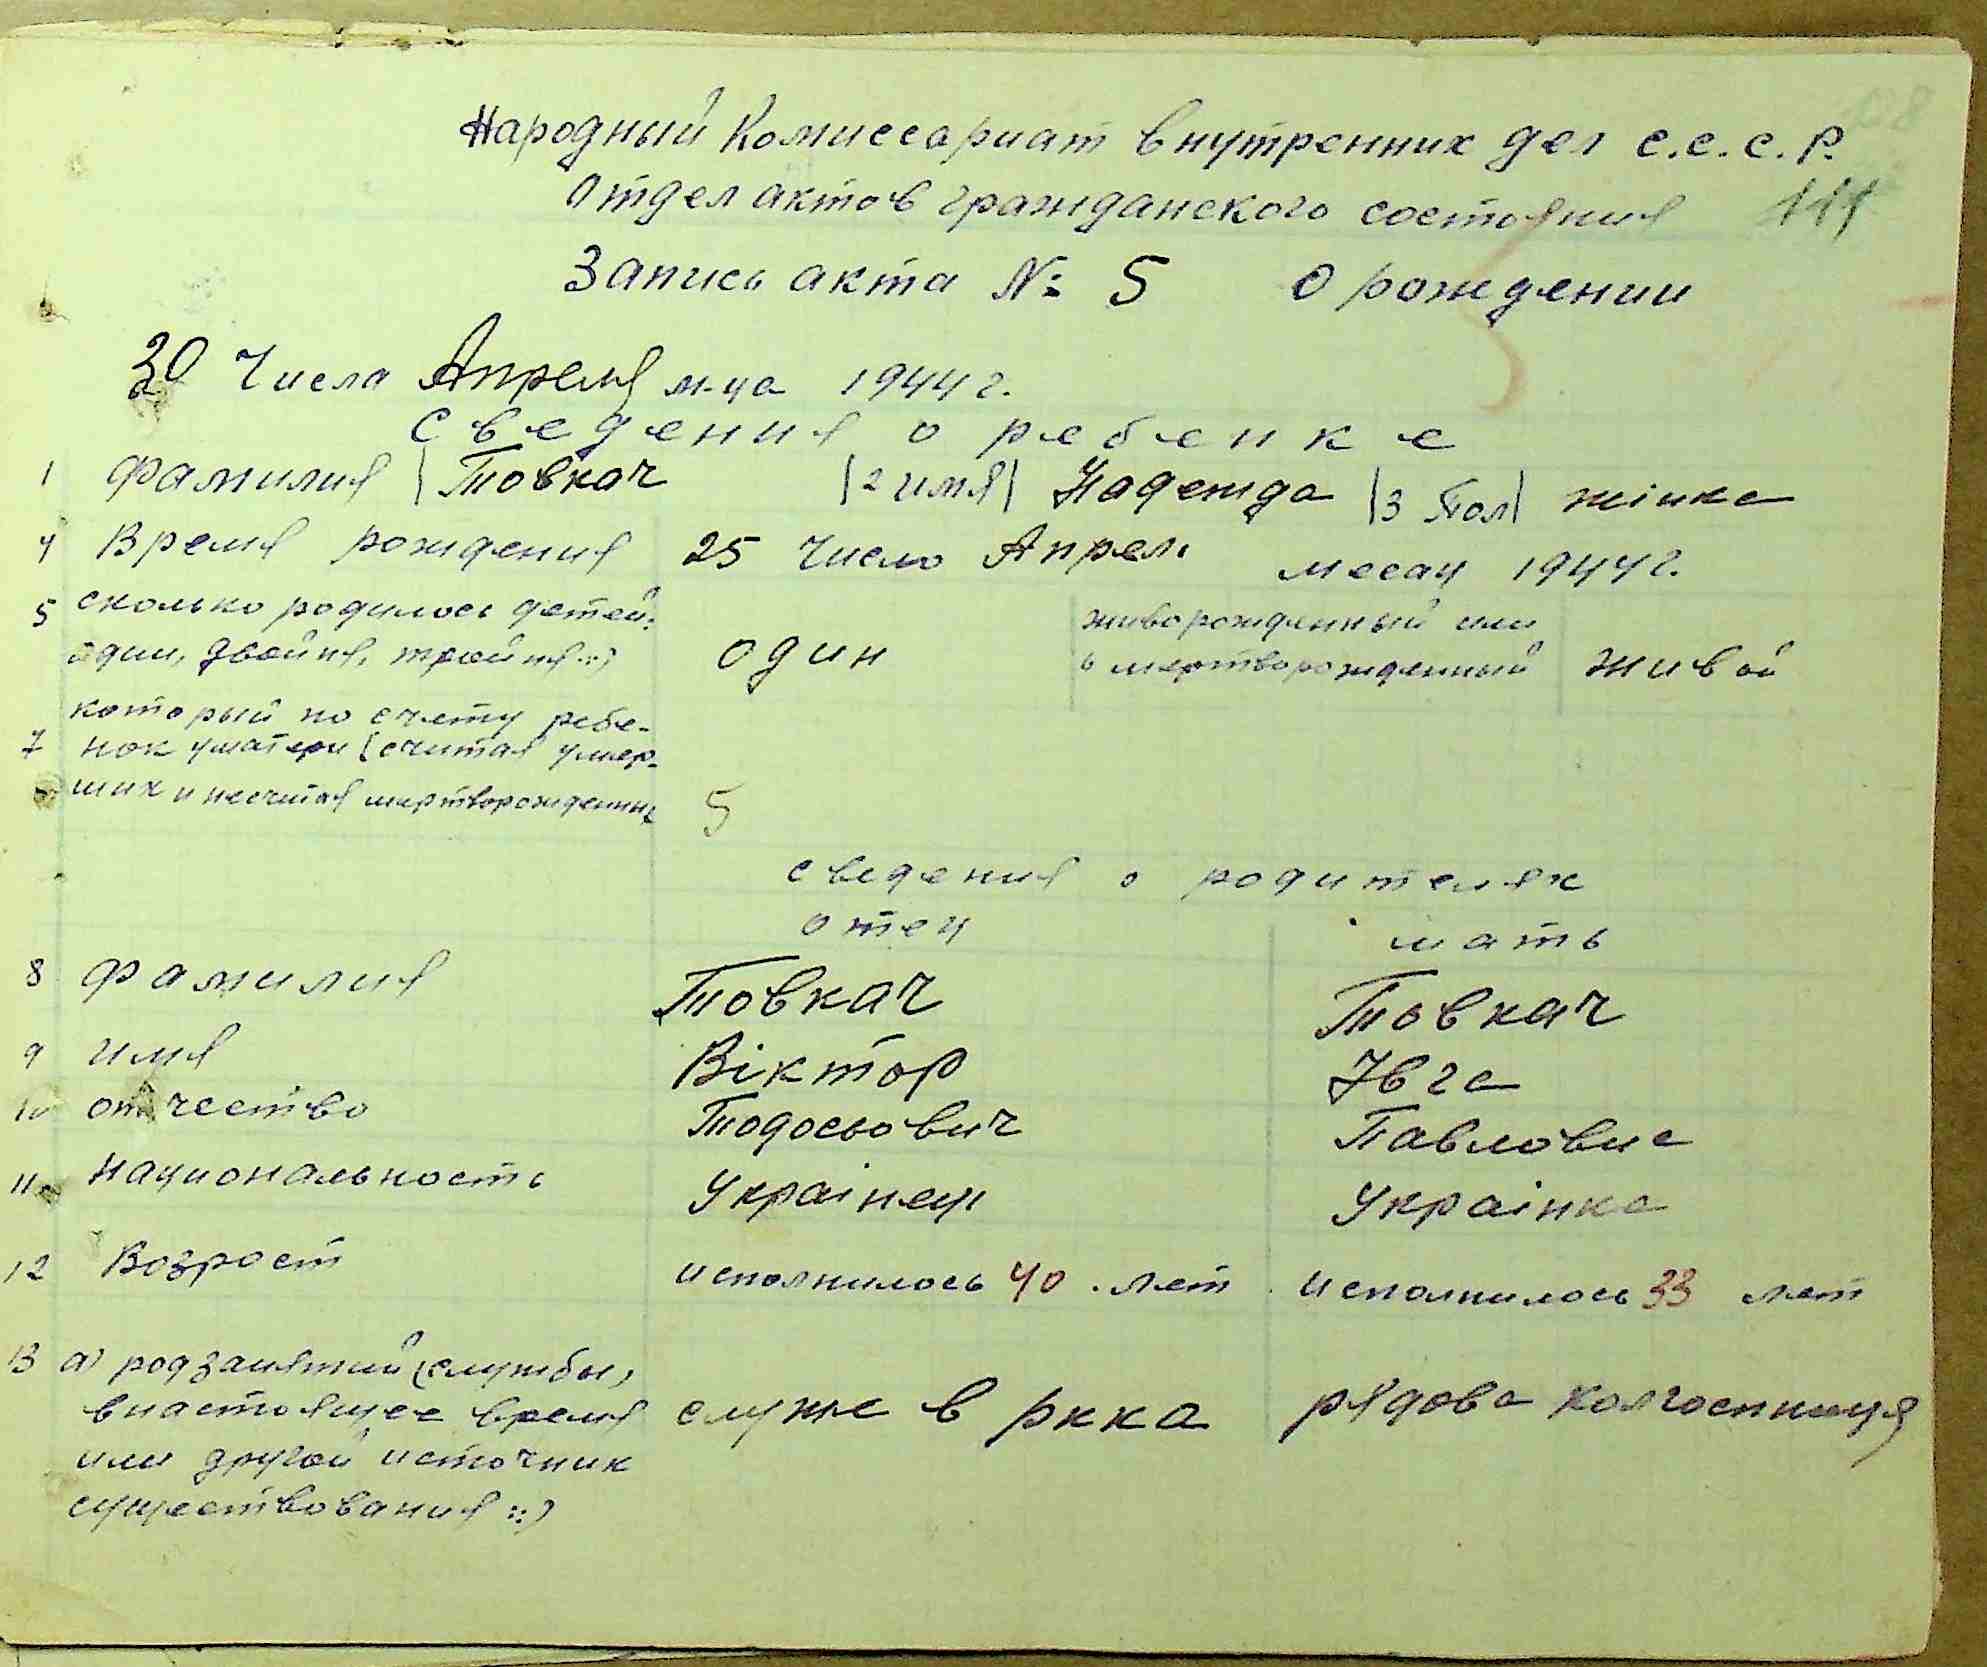 Народный Комиссариат внутренних дел С.С.С.Р.
Отдел актов гражданского состояния 111
Запись акта № 5 О рождении
30 Числа Апреля м-ца 1944 г.
Сведения о ребенке
1 фамилия | Товкач |2 имя| Надежда |3 Пол| жінка
4 Время рождения 25 Число Апрел. месац 1944 г.
5 сколько родилось детей: живорожденный или
один, двойня, тройня::) один 6 мертворожденный живой
который по счету ребе-
7 нок у матери (считая умер-
ших и несчитая мертворожденных 5
сведения о родителях
отец мать
8 фамилия Товкач Товкач
9 имя Віктор Івга
10 отчество Тодосьович Павловна
11 Национальность Украінец Украінка
12 Возраст исполнилось 40 лет исполнилось 33 лет
13 а) род занятий (службы,
в настоящее время служе в ркка рядова колгоспниця
или другой источник
существования::)